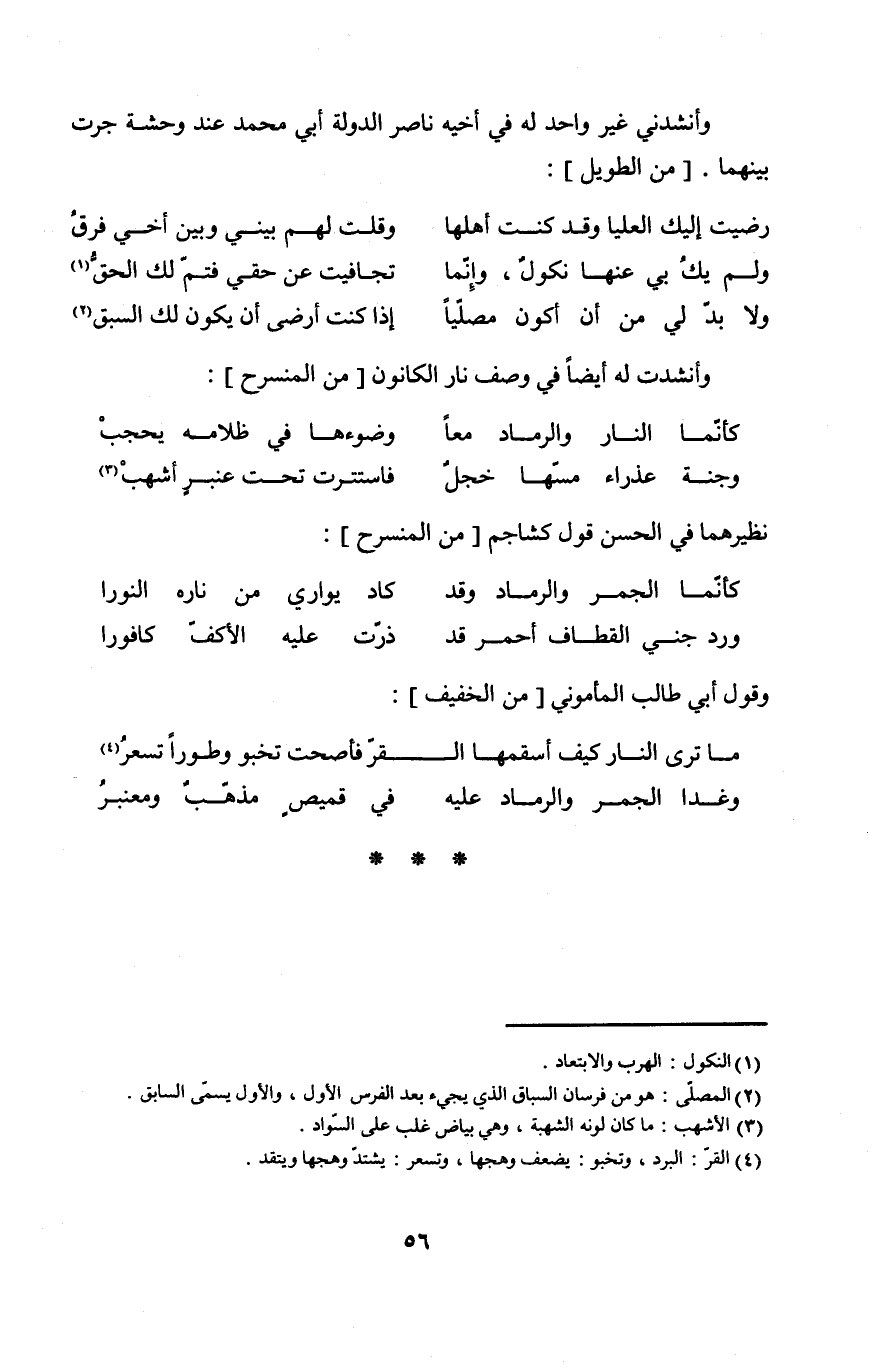 وأنشدني غير واحد له في أخيه ناصر الدولة أبي محمد عند وحشة جرت
بينهما . [ من الطويل ] :
رضيت إليك العليا وقد كنت أهلها وقلت لهم بيني وبين أخي فرقُ
ولم يكُ بي عنها نكولٌ ، وإنّما تجافيت عن حقي فتمّ لك الحقُّ(١)
ولا بدّ لي من أن أكون مصلّياً إذا كنت أرضى أن يكون لك السبق(٢)
وأنشدت له أيضاً في وصف نار الكانون [ من المنسرح ] :
كأنّما النار والرماد معاً وضوءها في ظلامه يحجبْ
وجنة عذراء مسّها خجلٌ فاستترت تحت عنبرٍ أشهبْ(٣)
نظيرهما في الحسن قول كشاجم [ من المنسرح ] :
كأنّما الجمر والرماد وقد كاد يواري من ناره النورا
ورد جني القطاف أحمر قد ذرّت عليه الأكفّ كافورا
وقول أبي طالب المأموني [ من الخفيف ] :
ما ترى النار كيف أسقمها الـقرّ فأصحت تخبو وطوراً تسعرُ(٤)
وغدا الجمر والرماد عليه في قميصٍ مذهّبٌ ومعنبرُ
* * *
(١) النكول : الهرب والابتعاد .
(٢) المصلّى : هو من فرسان السباق الذي يجيء بعد الفرس الأول ، والأول يسمّى السابق .
(٣) الأشهب : ما كان لونه الشهبة ، وهي بياض غلب على السّواد .
(٤) القرّ : البرد ، وتخبو : يضعف وهجها ، وتسعر : يشتدّ وهجها ويتقد .
٥٦